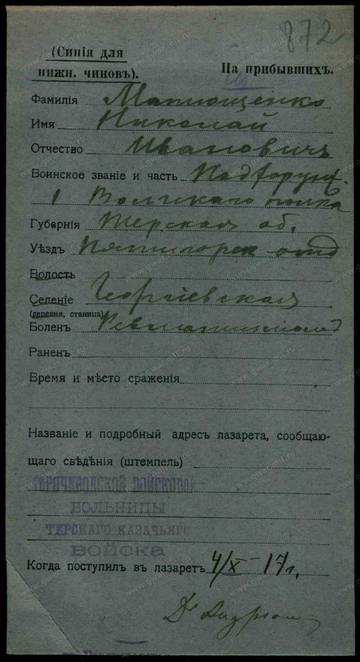 872
(Синія для
нижн. чиновъ).
На прибывшихъ.
Фамилія Матющенко
Имя Николай
Отчество Ивановичъ
Воинское званіе и часть Подхорунж.
1 Волгскаго полка
Губернія Терская об.
Уѣздъ Пятигорск отд
Волость
Селеніе Георгіевская
(деревня, станица)
Боленъ Ревматизмомъ
Раненъ
Время и мѣсто сраженія
Названіе и подробный адресъ лазарета, сообщаю-
щаго свѣдѣнія (штемпель)
ГОРЯЧЕВОДСКОЙ ВОЙСКОВОЙ
БОЛЬНИЦЫ
ТЕРСКАГО КАЗАЧЬЯГО
ВОЙСКА
Когда поступилъ въ лазаретъ 4/X-17г.